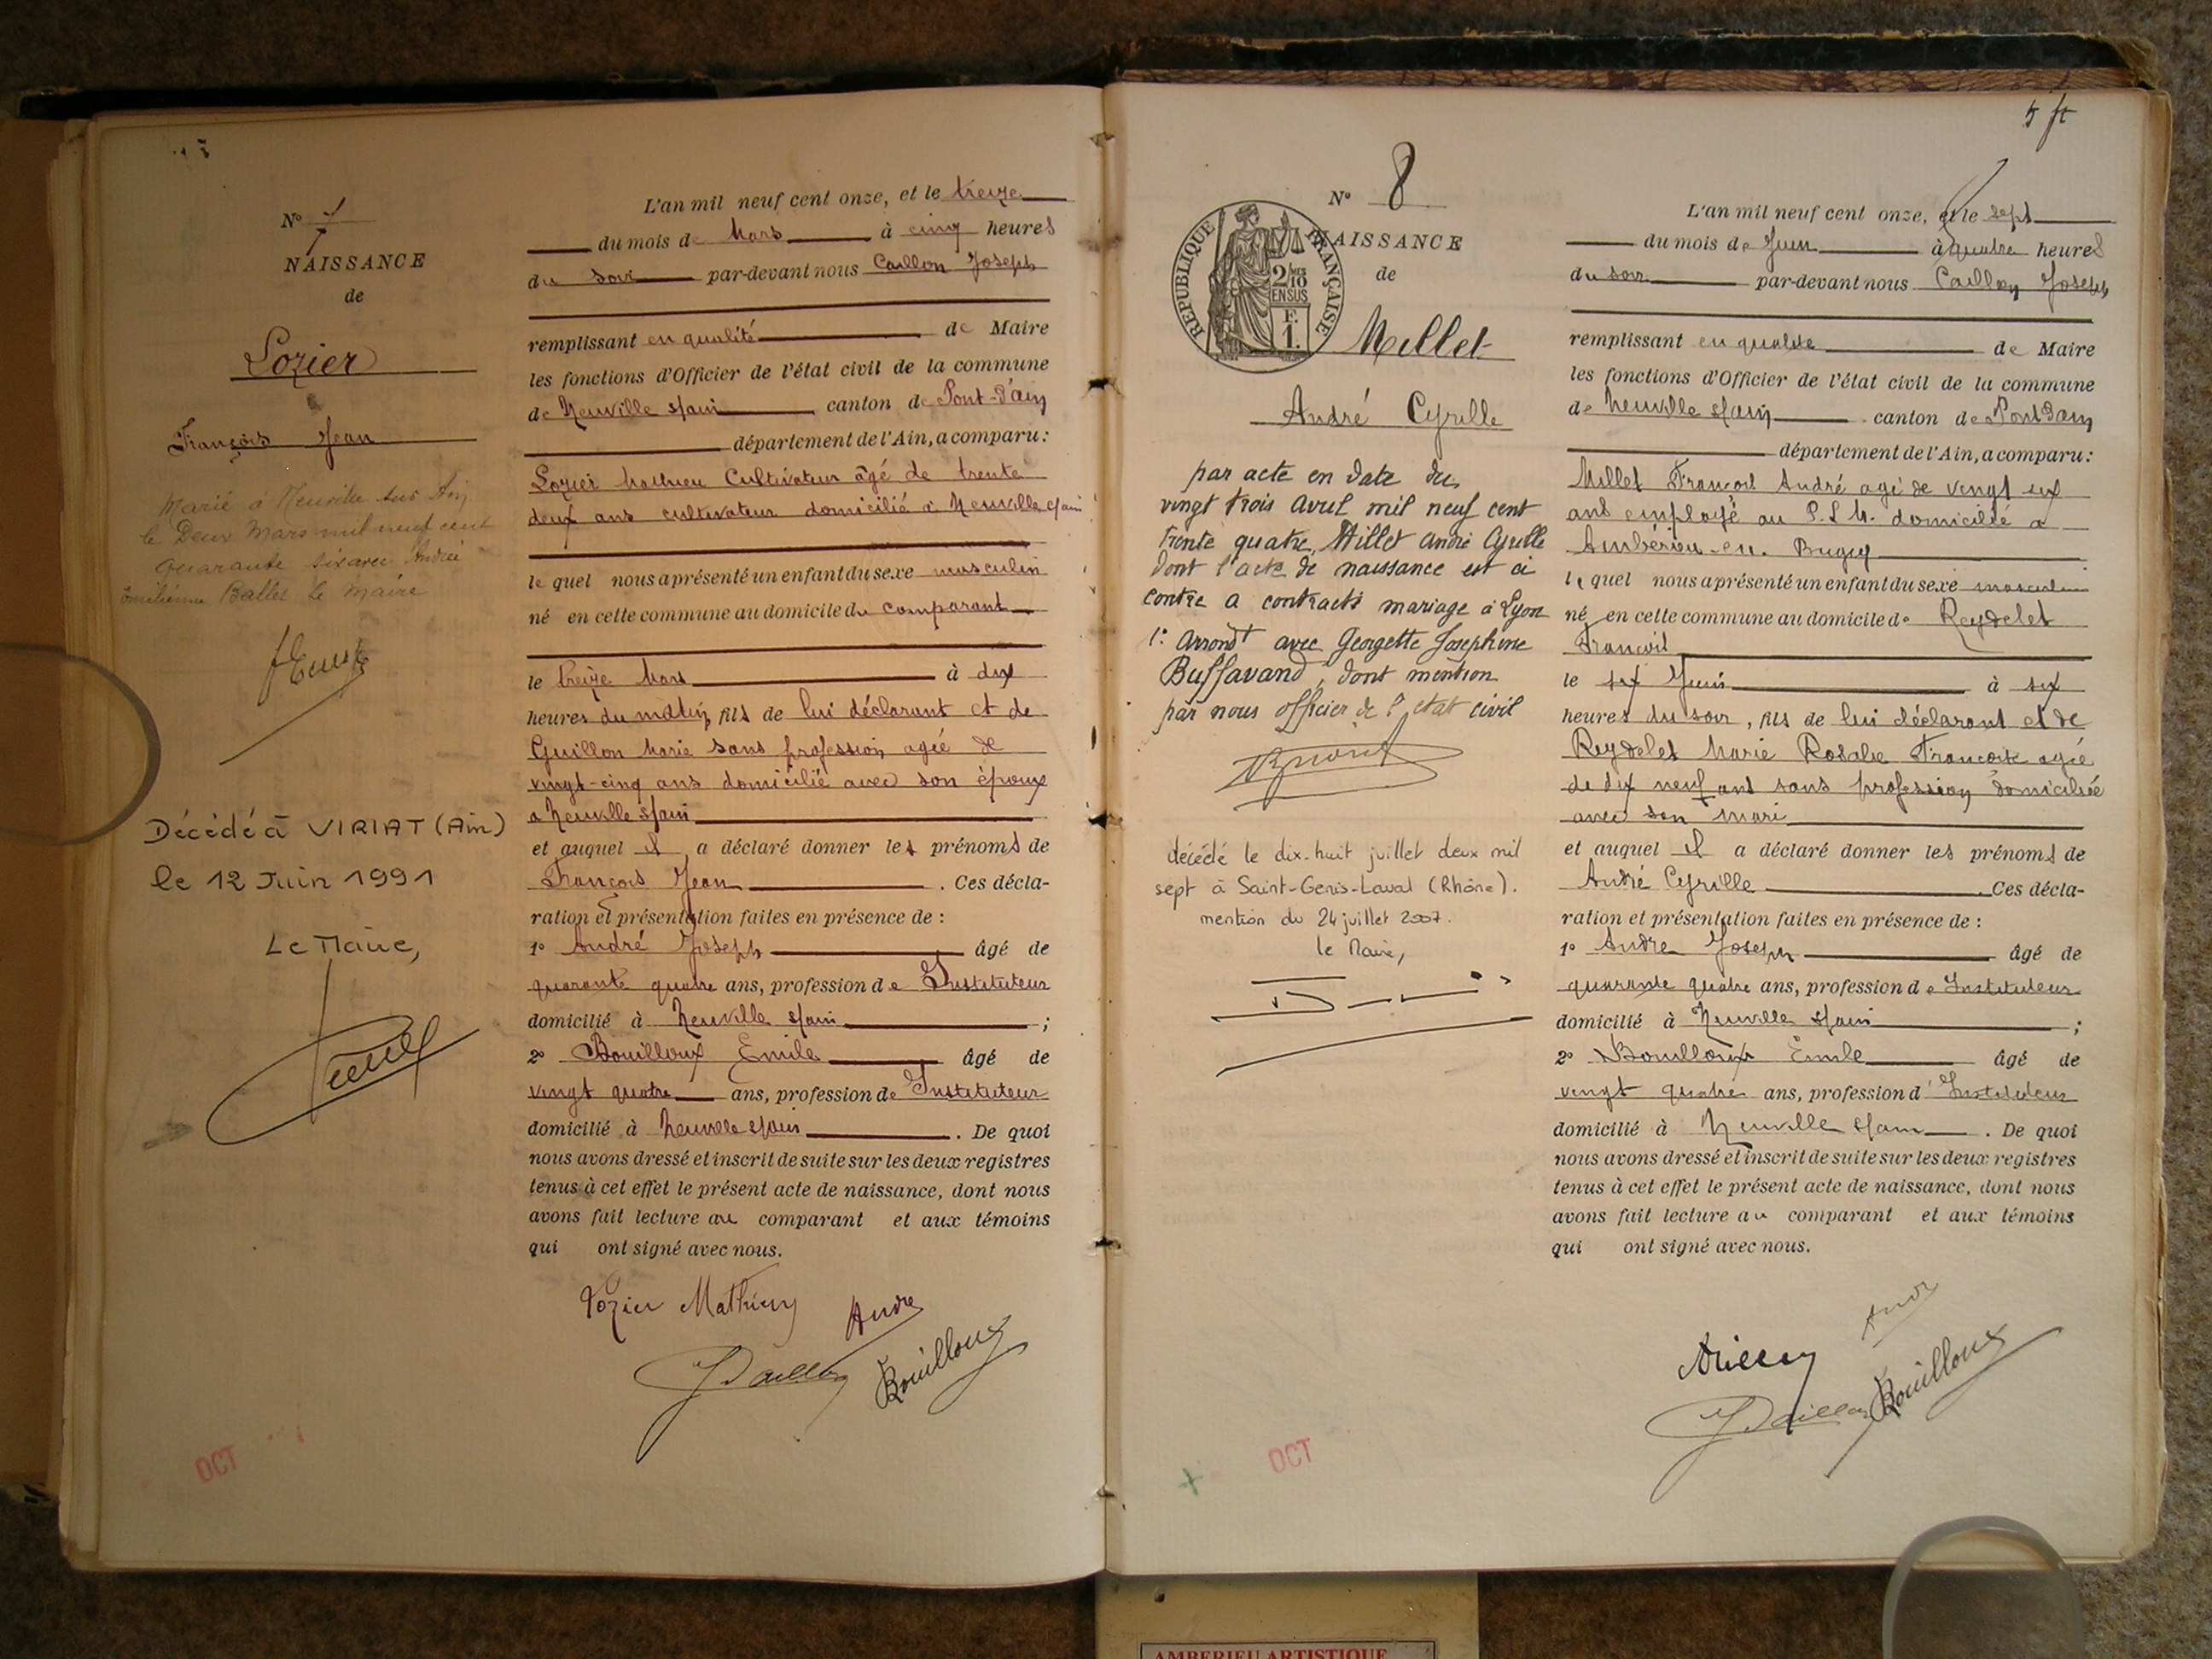 N° 7
NAISSANCE
de
Lozier
François Jean
Marié à Neuville sur Ain
le Deux Mars mil neuf cent
quarante six avec Andrée
Emilienne Ballet Le Maire
Décédé à VIRIAT (Ain)
le 12 Juin 1991
Le Maire,
OCT
L'an mil neuf cent onze, et le treize
du mois de Mars à cinq heures
du soir par-devant nous Caillon Joseph
remplissant en qualité de Maire
les fonctions d'Officier de l'état civil de la commune
de Neuville s/ain canton de Pont-d'ain
département de l'Ain, a comparu :
Lozier Mathieu Cultivateur âgé de trente
deux ans cultivateur domicilié à Neuville s/ain
le quel nous a présenté un enfant du sexe masculin
né en cette commune au domicile du comparant
le treize Mars à dix
heures du matin, fils de lui déclarant et de
Guillon Marie sans profession agée de
vingt-cinq ans domicilié avec son époux
a Neuville s/ain
et auquel il a déclaré donner les prénoms de
François Jean . Ces décla-
ration et présentation faites en présence de :
1° André Joseph âgé de
quarante quatre ans, profession de Instituteur
domicilié à Neuville s/ain ;
2° Bouilloux Emile âgé de
vingt quatre ans, profession de Instituteur
domicilié à Neuville s/ain . De quoi
nous avons dressé et inscrit de suite sur les deux registres
tenus à cet effet le présent acte de naissance, dont nous
avons fait lecture au comparant et aux témoins
qui ont signé avec nous.
Lozier Mathieu André
JCaillon Bouilloux
5 ft
N° 8
REPUBLIQUE FRANÇAISE
2/10
EN SUS
F.
1.
NAISSANCE
de
Millet
André Cyrille
par acte en date du
vingt trois Avril mil neuf cent
trente quatre, Millet André Cyrille
dont l'acte de naissance est ci
contre a contracté mariage à Lyon
1° Arrondt avec Georgette Josephine
Buffavand, dont mention
par nous officier de l'etat civil
décédé le dix-huit juillet deux mil
sept à Saint-Genis-Laval (Rhône).
mention du 24 juillet 2007.
le Maire,
OCT
L'an mil neuf cent onze, et le sept
du mois de Juin à quatre heures
du soir par-devant nous Caillon Joseph
remplissant en qualité de Maire
les fonctions d'Officier de l'état civil de la commune
de Neuville s/ain canton de Pont d'ain
département de l'Ain, a comparu :
Millet François André agé de vingt six
ans employé au P.L.M. domicilié a
Ambérieu-en-Bugey
le quel nous a présenté un enfant du sexe masculin
né en cette commune au domicile de Reydelet
François
le six Juin à six
heures du soir, fils de lui déclarant et de
Reydelet Marie Rosalie Françoise agée
de dix neuf ans sans profession domiciliée
avec son mari
et auquel il a déclaré donner les prénoms de
André Cyrille . Ces décla-
ration et présentation faites en présence de :
1° André Joseph âgé de
quarante quatre ans, profession de Instituteur
domicilié à Neuville s/ain ;
2° Bouilloux Emile âgé de
vingt quatre ans, profession d'Instituteur
domicilié à Neuville s/ain . De quoi
nous avons dressé et inscrit de suite sur les deux registres
tenus à cet effet le présent acte de naissance, dont nous
avons fait lecture au comparant et aux témoins
qui ont signé avec nous.
André
Millet
JCaillon Bouilloux
AMBERIEU ARTISTIQUE